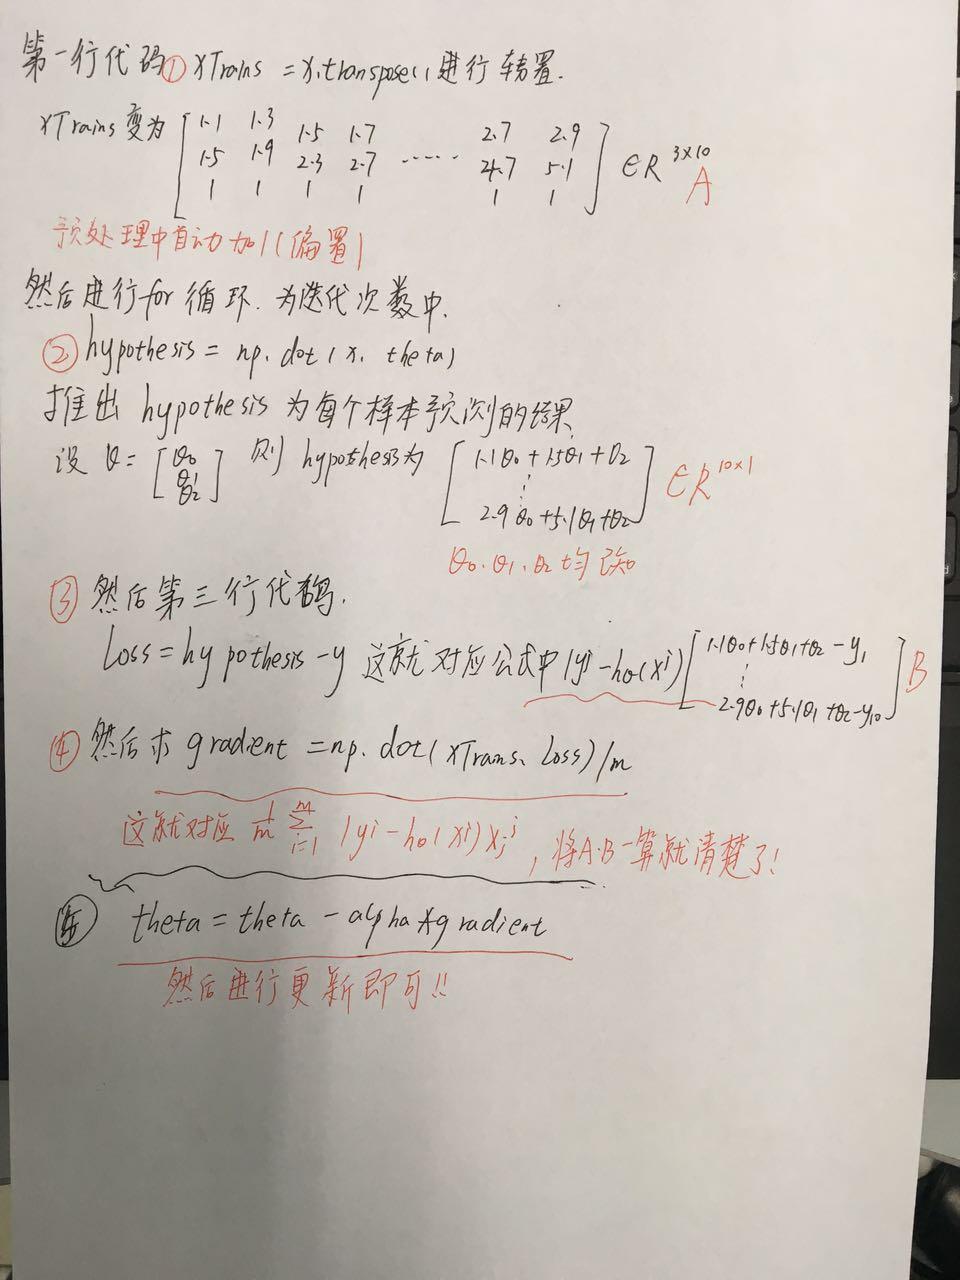 第一行代码① xTrains = x.transpose() 进行转置.
xTrains 变为 [ 1.1 1.3 1.5 1.7 ...... 2.7 2.9
1.5 1.9 2.3 2.7 4.7 5.1
1 1 1 1 1 1 ] ∈R^{3×10} A
预处理中自动加1(偏置)
然后进行for循环. 为迭代次数中.
② hypothesis = np.dot(x, theta)
推出 hypothesis 为每个样本预测的结果
设 θ = [ θ0 θ1 θ2 ] 则 hypothesis为 [ 1.1θ0 + 1.5θ1 + θ2
⋮
2.9θ0 + 5.1θ1 + θ2 ] ∈R^{10×1}
θ0.θ1.θ2均已知
③ 然后第三行代码.
Loss = hypothesis - y 这就对应公式中(y^i - hθ(x^i)) [ 1.1θ0 + 1.5θ1 + θ2 - y1
⋮
2.9θ0 + 5.1θ1 + θ2 - y10 ] B
④ 然后求 gradient = np.dot(xTrans, Loss)/m
这就对应 1/m Σ_{i=1}^{m} (y^i - hθ(x^i)) x_j^i , 将A·B一算就清楚了!
⑤ theta = theta - alpha * gradient
然后进行更新即可!!